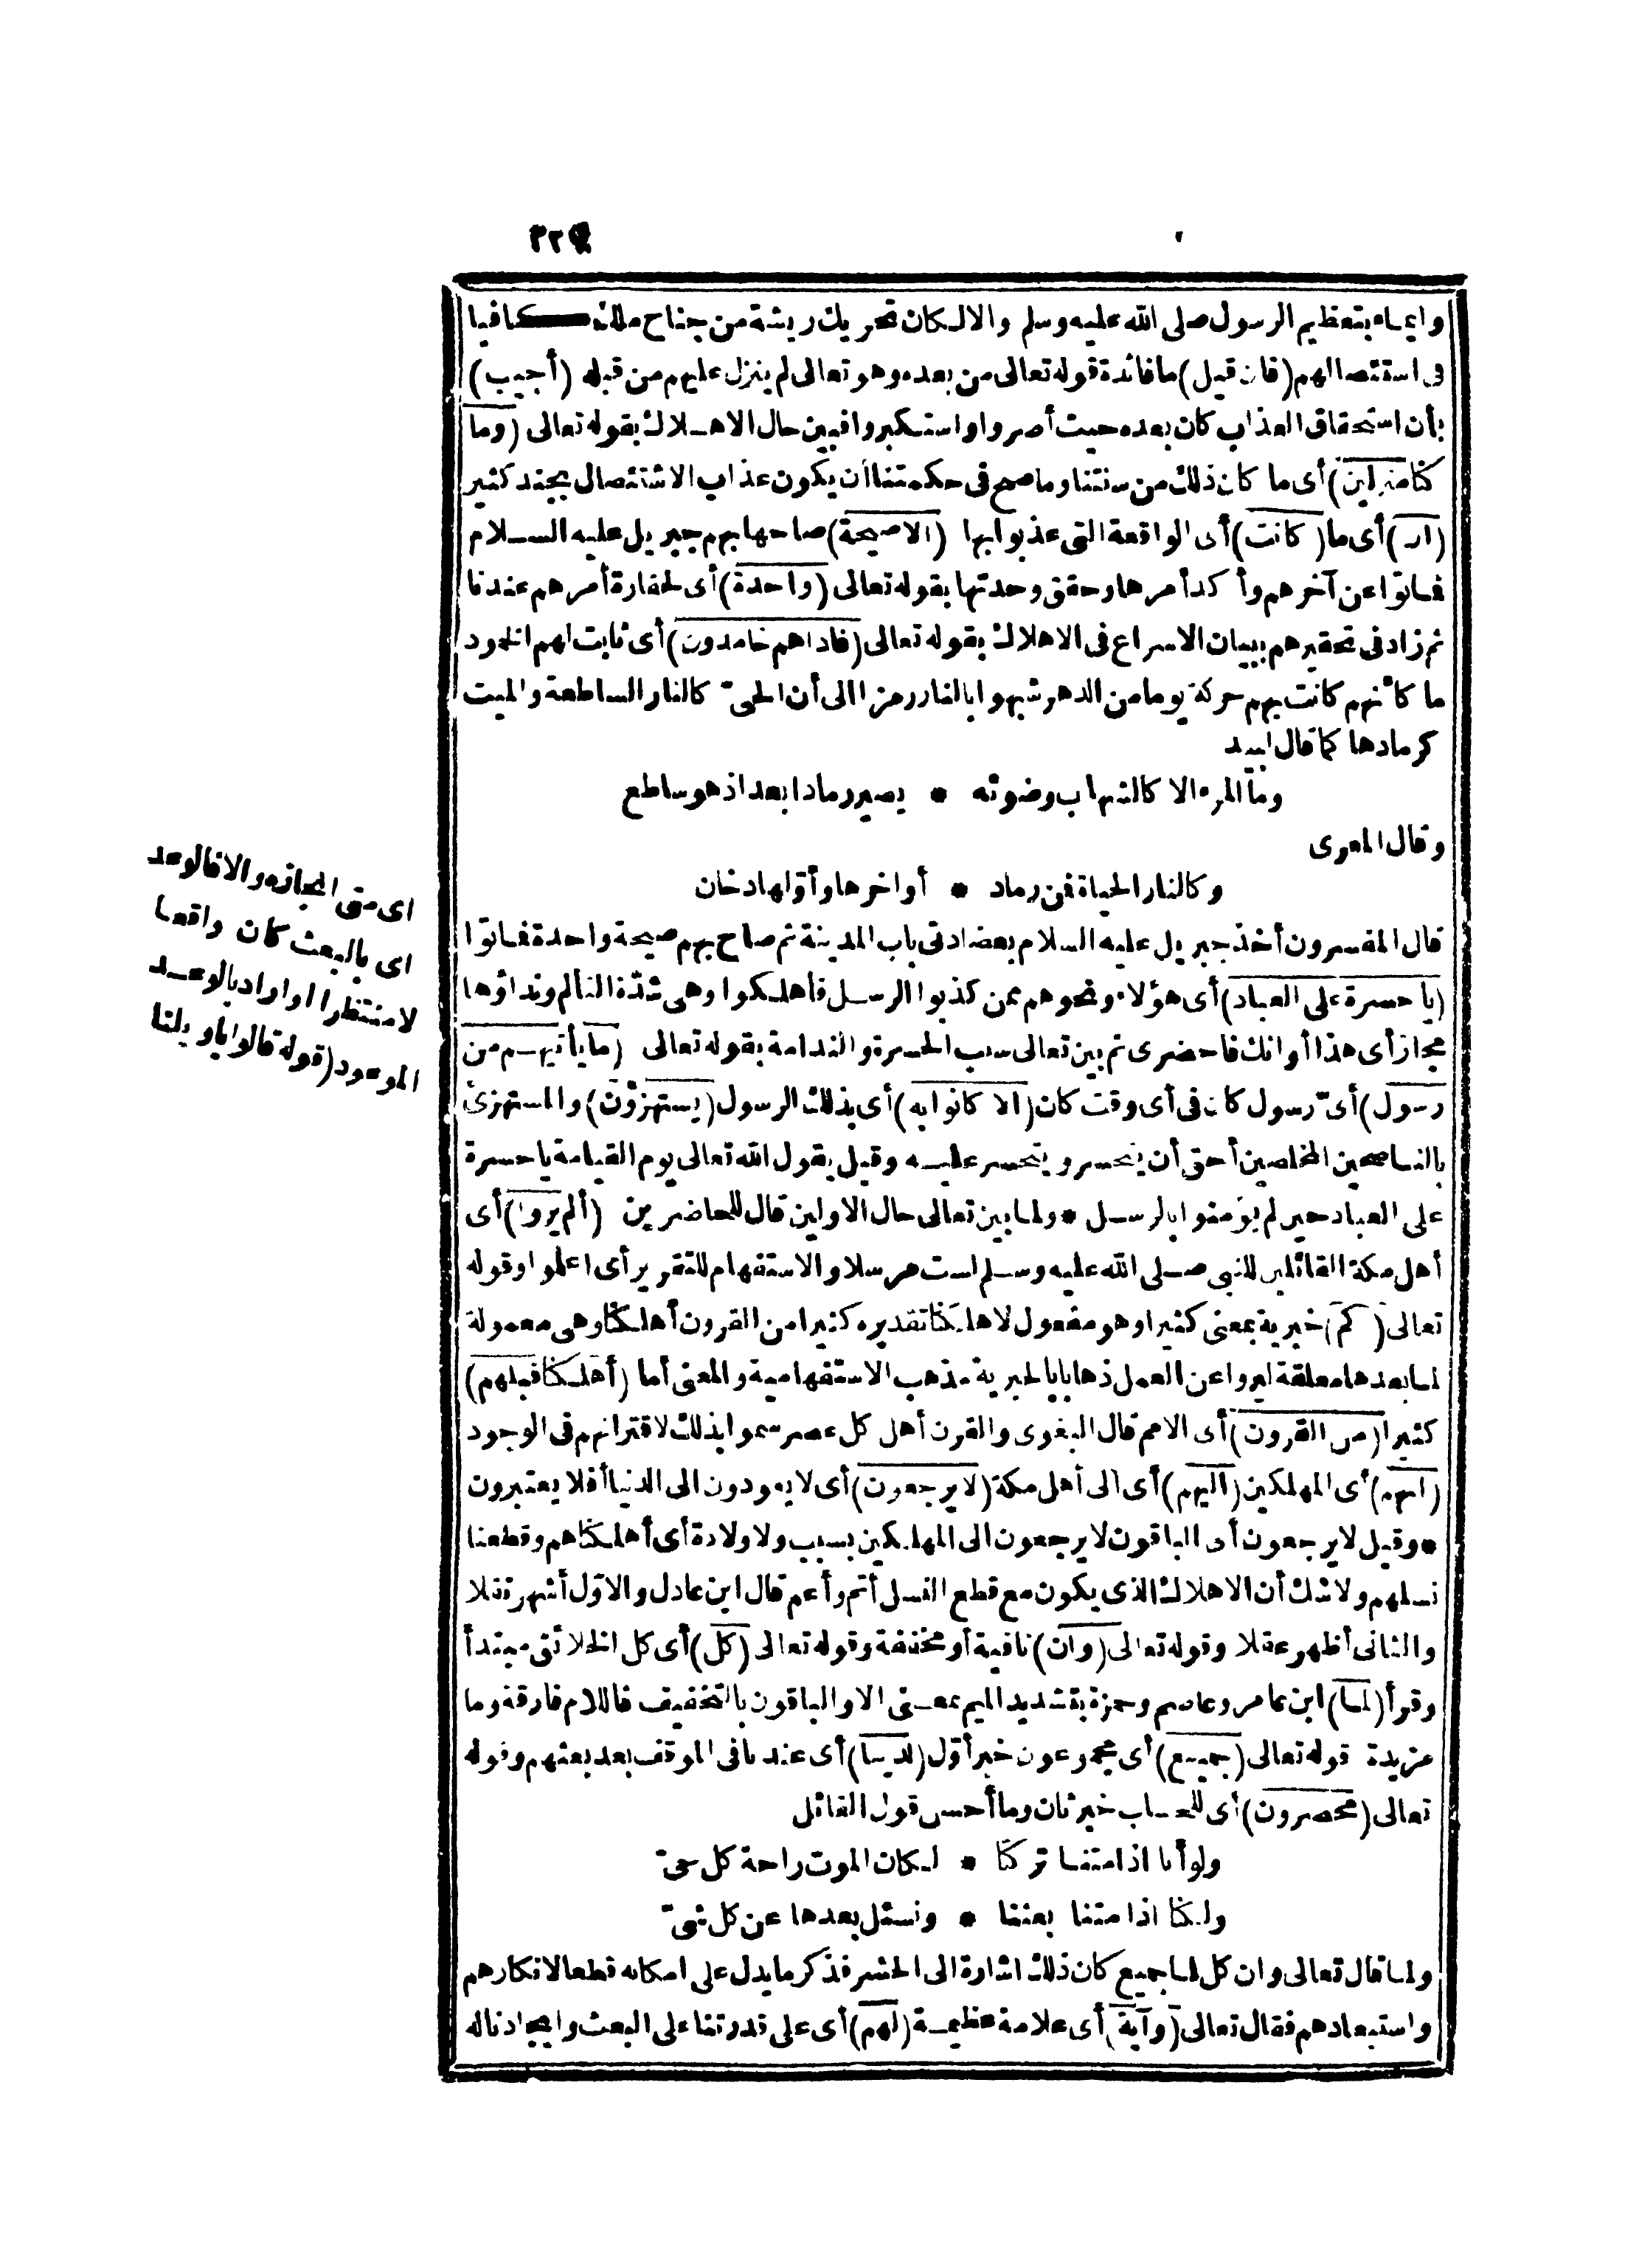 ٣٢٩
وايماء بتعظيم الرسول صلى الله عليه وسلم والالكان تحريك ريشة من جناح ملك كافيا
فى استئصالهم (فان قيل) ما فائدة قوله تعالى من بعده وهو تعالى لم ينزل عليهم من قبله (أجيب)
بأن استحقاق العذاب كان بعده حيث أصروا واستكبروا فبين حال الاهلاك بقوله تعالى (وما
كنا منزلين) أى ما كان ذلك من سنتنا وما صح فى حكمتنا أن يكون عذاب الاستئصال بجند كثير
(ان) أى ما (كانت) أى الواقعة التى عذبوا بها (الا صيحة) صاح بهم جبريل عليه السلام
فماتوا عن آخرهم وأكد أمرها وحقق وحدتها بقوله تعالى (واحدة) أى لحقارة أمرهم عندنا
ثم زاد فى تحقيرهم ببيان الاسراع فى الاهلاك بقوله تعالى (فاذا هم خامدون) أى ثابت لهم الخمود
ما كأنهم كانت بهم حركة يوما من الدهر شبهوا بالنار رمزا الى أن الحىّ كالنار الساطعة والميت
كرمادها كما قال لبيد
وما المرء الا كالشهاب وضوئه * يصير رمادا بعد اذ هو ساطع
وقال المعرى
وكالنار الحياة فمن رماد * أواخرها وأوّلها دخان
قال المفسرون أخذ جبريل عليه السلام بعضادتى باب المدينة ثم صاح بهم صيحة واحدة فماتوا
(يا حسرة على العباد) أى هؤلاء ونحوهم ممن كذبوا الرسل فأهلكوا وهى شدّة التألم ونداؤها
مجاز أى هذا أوانك فاحضرى ثم بين تعالى سبب الحسرة والندامة بقوله تعالى (ما يأتيهم من
رسول) أىّ رسول كان فى أى وقت كان (الا كانوا به) أى بذلك الرسول (يستهزؤن) والمستهزئ
بالناصحين المخلصين أحق أن يتحسر ويتحسر عليه وقيل يقول الله تعالى يوم القيامة يا حسرة
على العباد حين لم يؤمنوا بالرسل * ولما بين تعالى حال الاولين قال للحاضرين (ألم يروا) أى
أهل مكة القائلين للنبى صلى الله عليه وسلم لست مرسلا والاستفهام للتقرير أى اعلموا وقوله
تعالى (كم) خبرية بمعنى كثيرا وهو مفعول لاهلكنا تقديره كثيرا من القرون أهلكنا وهى معمولة
لما بعدها معلقة ليروا عن العمل ذهابا بالخبرية مذهب الاستفهامية والمعنى أما (أهلكنا قبلهم)
كثيرا (من القرون) أى الامم قال البغوى والقرن أهل كل عصر سموا بذلك لاقترانهم فى الوجود
(انهم) أى المهلكين (اليهم) أى الى أهل مكة (لا يرجعون) أى لا يعودون الى الدنيا أفلا يعتبرون
* وقيل لا يرجعون أى الباقون لا يرجعون الى المهلكين بسبب ولا ولادة أى أهلكناهم وقطعنا
نسلهم ولا شك أن الاهلاك الذى يكون مع قطع النسل أتم وأعم قال ابن عادل والاوّل أشهر نقلا
والثانى أظهر عقلا وقوله تعالى (وان) نافية أو مخففة وقوله تعالى (كل) أى كل الخلائق مبتدأ
وقرأ (لما) ابن عامر وعاصم وحمزة بتشديد الميم بمعنى الا والباقون بالتخفيف فاللام فارقة وما
مزيدة قوله تعالى (جميع) أى مجموعون خبر أوّل (لدينا) أى عندنا فى الموقف بعد بعثهم وقوله
تعالى (محضرون) أى للحساب خبر ثان وما أحسن قول القائل
ولو أنا اذا متنا تركنا * لكان الموت راحة كل حىّ
ولكنا اذا متنا بعثنا * ونسئل بعدها عن كل شىّ
ولما قال تعالى وان كل لما جميع كان ذلك اشارة الى الحشر فذكر ما يدل على امكانه قطعا لانكارهم
واستبعادهم فقال تعالى (وآية) أى علامة عظيمة (لهم) أى على قدرتنا على البعث وايجادنا له
اى متى انجازه والا فالوعد
اى بالبعث كان واقعا
لا منتظرا او اراد بالوعد
الموعود (قوله قالوا ياويلنا